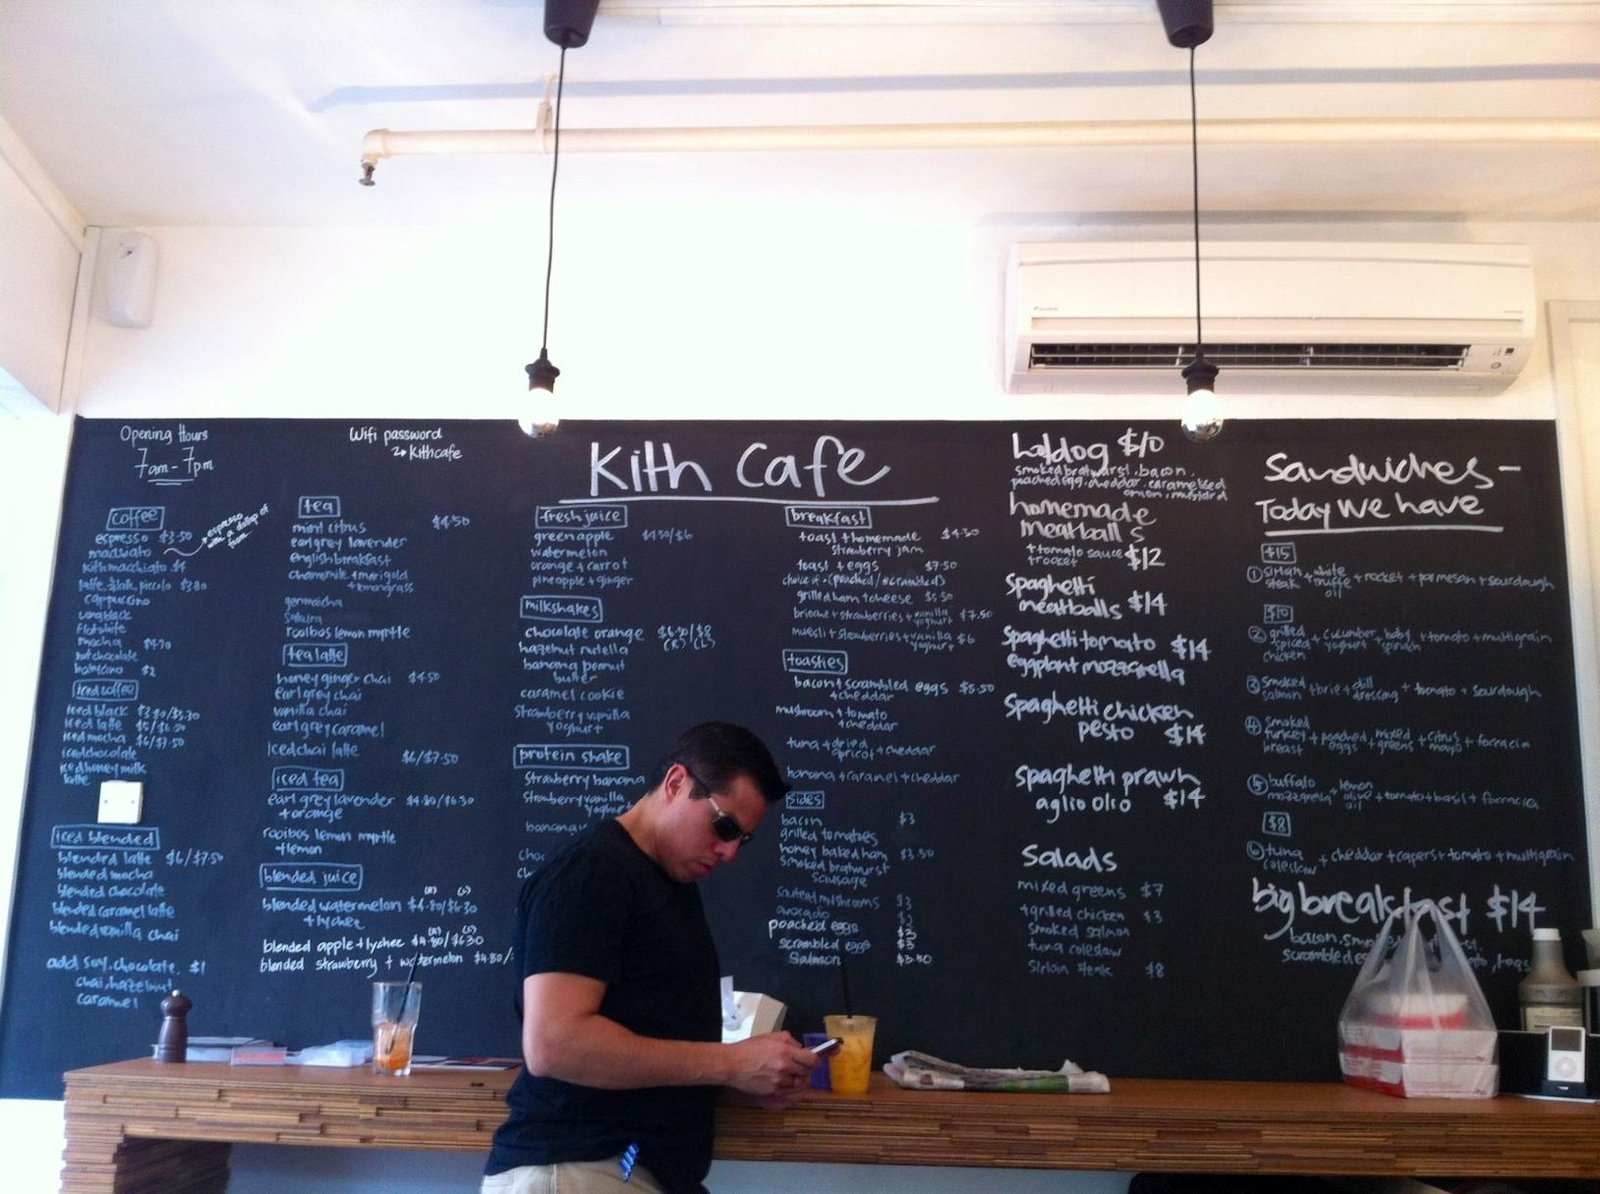 Opening Hours
7am - 7pm
Wifi password
kithcafe
Kith Cafe
coffee
espresso $3.50
macchiato
espresso
with a dollop of
foam
kith macchiato $4
latte, piccolo $3.80
cappuccino
long black
flat white
mocha $4.70
hot chocolate
babycino $2
iced coffee
iced black $3.80/$5.30
iced latte $5/$6.50
iced mocha $6/$7.50
iced chocolate
iced honey milk
latte
iced blended
blended latte $6/$7.50
blended mocha
blended chocolate
blended caramel latte
blended vanilla chai
add soy, chocolate, $1
chai, hazelnut
caramel
tea
mint citrus $4.50
earl grey lavender
english breakfast
chamomile + marigold
+ lemongrass
genmaicha
sakura
rooibos lemon myrtle
tea latte
honey ginger chai $4.50
earl grey chai
vanilla chai
earl grey caramel
iced chai latte $6/$7.50
iced tea
earl grey lavender $4.80/$6.30
+ orange
rooibos lemon myrtle
+ lemon
blended juice
(R) (L)
blended watermelon $4.80/$6.30
+ lychee
(R) (L)
blended apple + lychee $4.80/$6.30
blended strawberry + watermelon $4.80/
fresh juice
green apple $4.50/$6
watermelon
orange + carrot
pineapple + ginger
milkshakes
chocolate orange $6.50/$8
(R) (L)
hazelnut nutella
banana peanut
butter
caramel cookie
strawberry vanilla
yoghurt
protein shake
strawberry banana
strawberry vanilla
banana
choc
breakfast
toast + homemade $4.50
strawberry jam
toast + eggs $7.50
choice of (poached/scrambled)
grilled ham + cheese $5.50
brioche + strawberries + vanilla $7.50
yoghurt
muesli + strawberries + vanilla $6
yoghurt
toasties
bacon + scrambled eggs $5.50
+ cheddar
mushroom + tomato
+ cheddar
tuna + dried
apricot + cheddar
banana + caramel + cheddar
sides
bacon $3
grilled tomatoes
honey baked ham $3.50
smoked bratwurst
sausage
sauteed mushrooms $3
avocado $2
poached eggs
scrambled eggs
Salmon $3.50
hotdog $10
smoked bratwurst, bacon,
poached egg, cheddar, caramelised
onion, mustard
homemade
meatballs
+ tomato sauce $12
+ rocket
spaghetti
meatballs $14
spaghetti tomato $14
eggplant mozzarella
spaghetti chicken
pesto $14
spaghetti prawn
aglio olio $14
Salads
mixed greens $7
+ grilled chicken $3
smoked salmon
tuna coleslaw
sirloin steak $8
Sandwiches -
Today we have
$15
① sirloin + white + rocket + parmesan + sourdough
steak truffle
oil
$10
② grilled + cucumber + baby + tomato + multigrain
spiced yoghurt spinach
chicken
③ smoked + brie + dill + tomato + sourdough
salmon dressing
④ smoked
turkey + poached + mixed + citrus + focaccia
breast eggs greens mayo
⑤ buffalo + lemon
mozzarella olive + tomato + basil + focaccia
oil
$8
⑥ tuna + cheddar + capers + tomato + multigrain
coleslaw
big breakfast $14
bacon,